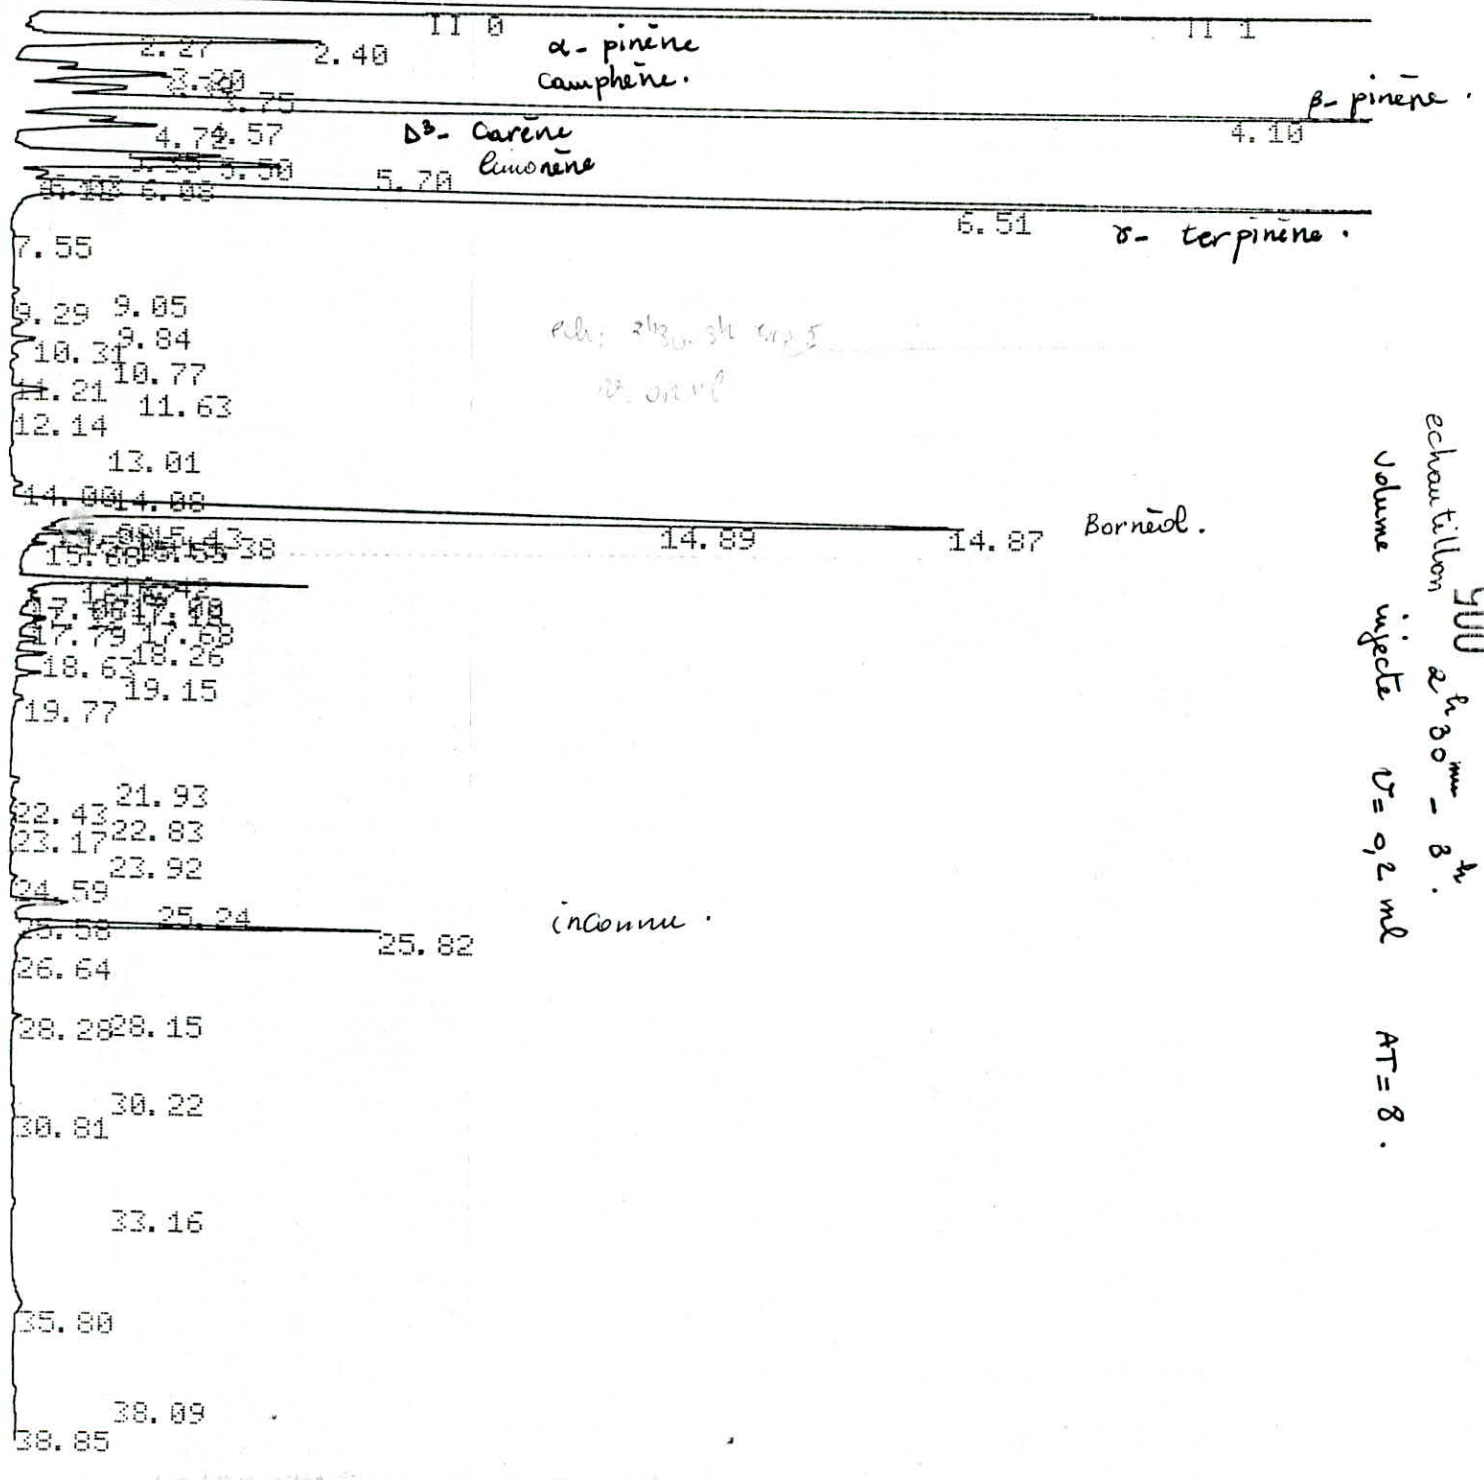 II 0
II 1
2.27
2.40
α- pinène
Camphène.
3.75
β- pinène.
4.57
Δ³- Carène
4.10
limonène
5.50
5.70
6.08
6.51
γ- terpinène.
7.55
9.05
9.29
9.84
10.31
10.77
11.21
11.63
12.14
13.01
14.00 14.08
14.89
14.87
Bornéol.
17.79 17.68
18.26
18.63
19.15
19.77
21.93
22.43
22.83
23.17
23.92
24.59
25.24
inconnu.
25.58
25.82
26.64
28.28 28.15
30.22
30.81
33.16
35.80
38.09
38.85
echantillon 2h 30mn - 3h.
volume injecte V = 0,2 ml AT = 8.